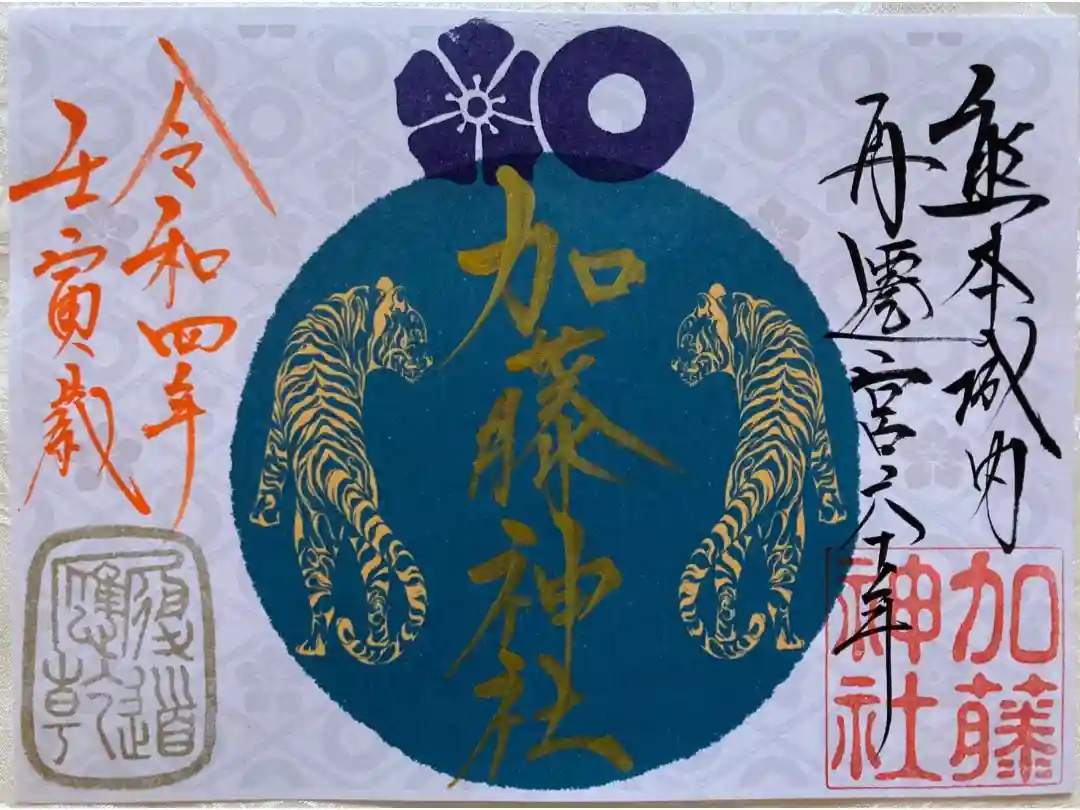 熊本城内
再遷宮六十年
加藤神社
加藤
神社
加藤神社
令和四年
壬寅歳